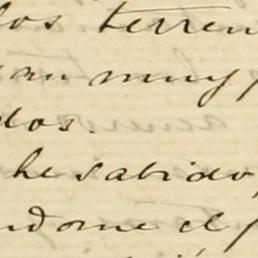 los terren
an muy
dos.
he sabido,
ndome el